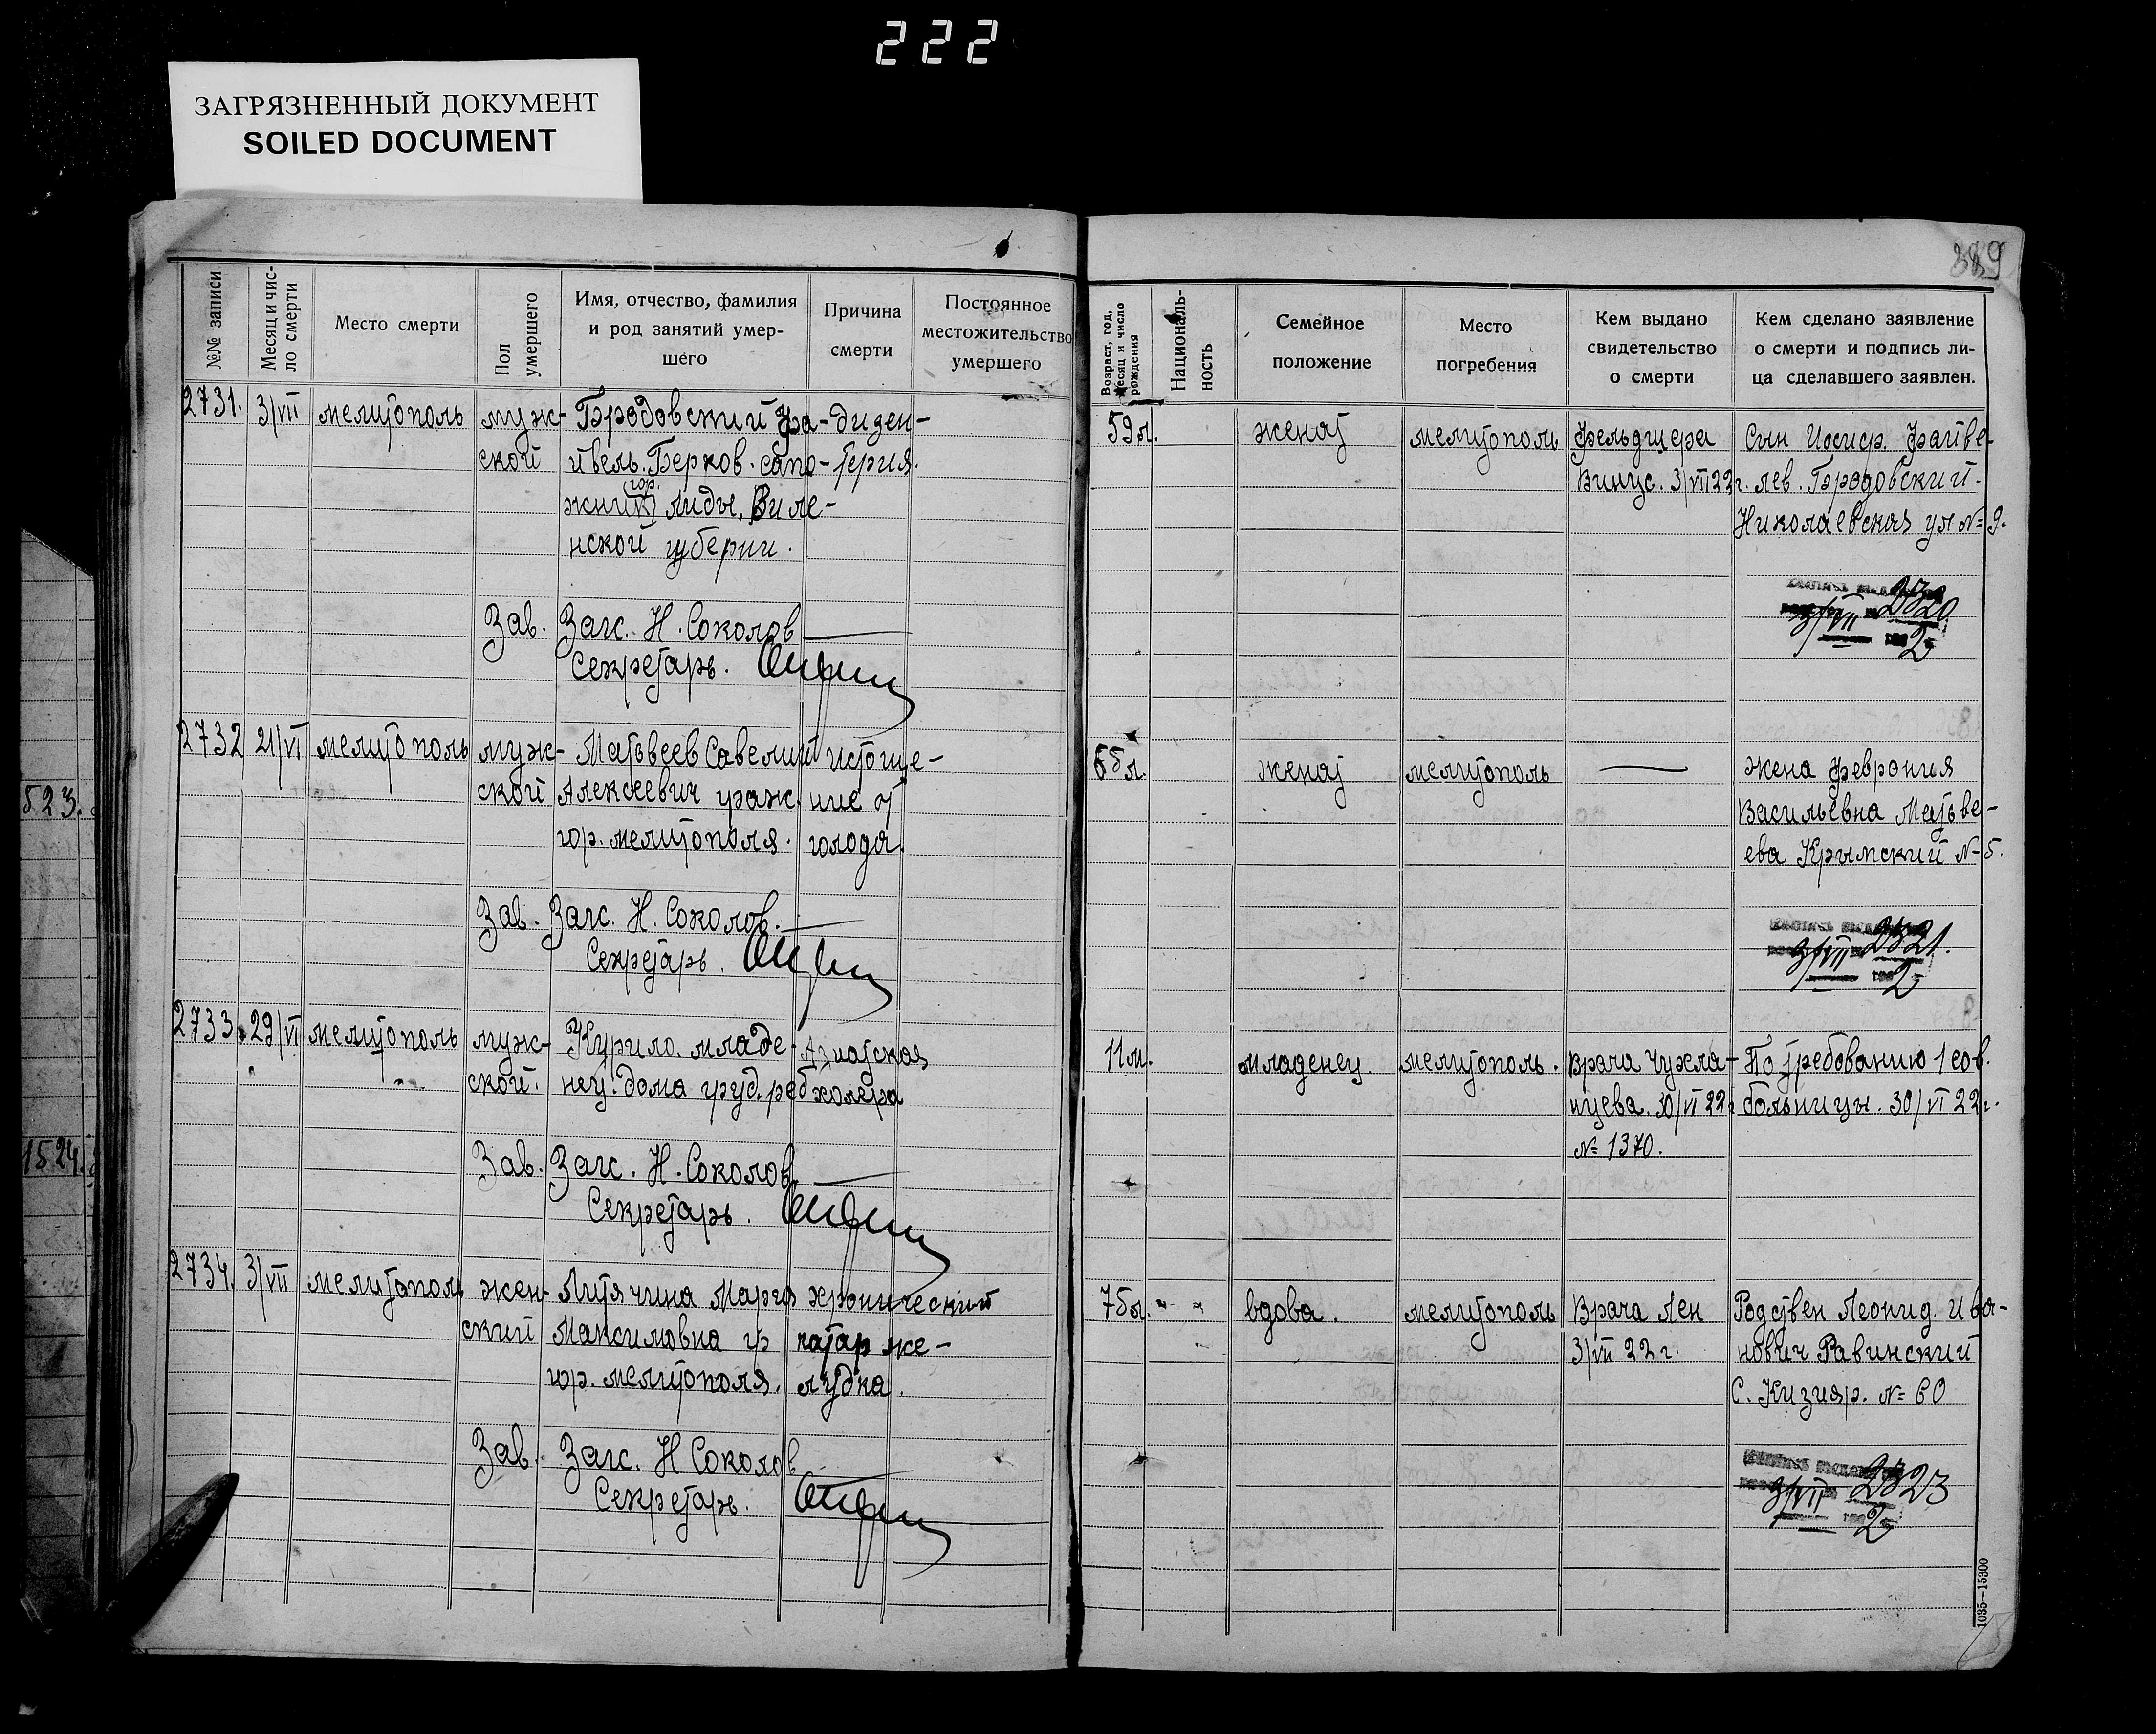 222
ЗАГРЯЗНЕННЫЙ ДОКУМЕНТ
SOILED DOCUMENT
№№ записи
Месяц и чис-
ло смерти
Место смерти
Пол
умершего
Имя, отчество, фамилия
и род занятий умер-
шего
Причина
смерти
Постоянное
местожительство
умершего
Возраст, год,
месяц и число
рождения
Националь-
ность
Семейное
положение
Место
погребения
Кем выдано
свидетельство
о смерти
Кем сделано заявление
о смерти и подпись ли-
ца сделавшего заявлен.
2731. 3/VII мелитополь муж- Бродовский Фа- дизен-
ской йвель. Берков. сапо- терия.
гор.
жник Лиды, Виле-
нской губерни.
59 л. женат мелитополь фельдшера Сын Иосиф. Файве-
Винус. 3/VII 22 г. лев. Бродовский.
Николаевская ул № 9.
Зав. Загс. Н. Соколов
Секретарь.
3/VII 2320
2732 21/VI мелитополь муж- Матвеев Савелий Истоще-
ской Алексеевич граж. ние от
гор. мелитополя. голода.
65 л. женат мелитополь — жена Феврония
Васильевна Матве-
ева Крымский № 5.
Зав. Загс. Н. Соколов.
Секретарь.
3/VII 2321.
2733. 29/VI мелитополь муж- Курило. младе- Азиатская
ской. нец. дома груд. реб холера
11 м. младенец. мелитополь. Врача Чухла-
нцева. 30/VI 22 г
№ 1370.
По требованию 1 сов.
больницы. 30/VI 22 г.
Зав. Загс. Н. Соколов
Секретарь.
2734. 3/VII мелитополь жен- Литячина Мария хронический
ский Максимовна гр катар же-
гор. мелитополя. лудка.
75 л. " " вдова. мелитополь Врача Лен
3/VII 22 г.
Родствен Леонид. Ива-
нович Равинский
С. Кизияр. № 60
Зав. Загс. Н Соколов
Секретарь.
3/VII 2323
523.
1524.
1085—15300